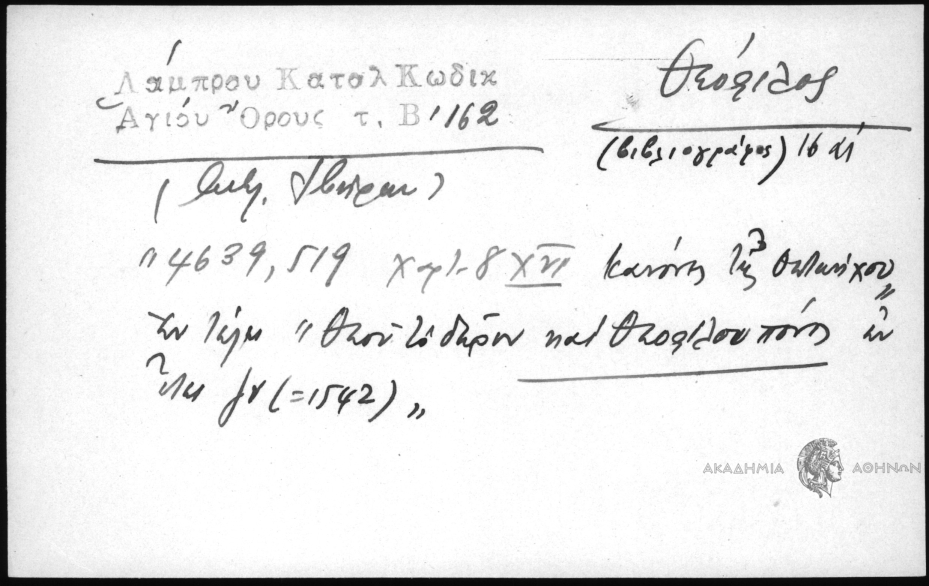 Λάμπρου Καταλ Κωδικ
Ἁγίου Ὄρους τ. Β' 162
Θεόφιλος
(βιβλιογράφος) 16 αἰ
Ἰβήρων)
"4639, 519 χαρτ. 8 XVI Κανόνες τῆς
Ἐν τέλει "Θεοῦ τὸ δῶρον καὶ Θεοφίλου πόνος ἐν
ἔτει ζν (=1542) "
ΑΚΑΔΗΜΙΑ ΑΘΗΝΩΝ